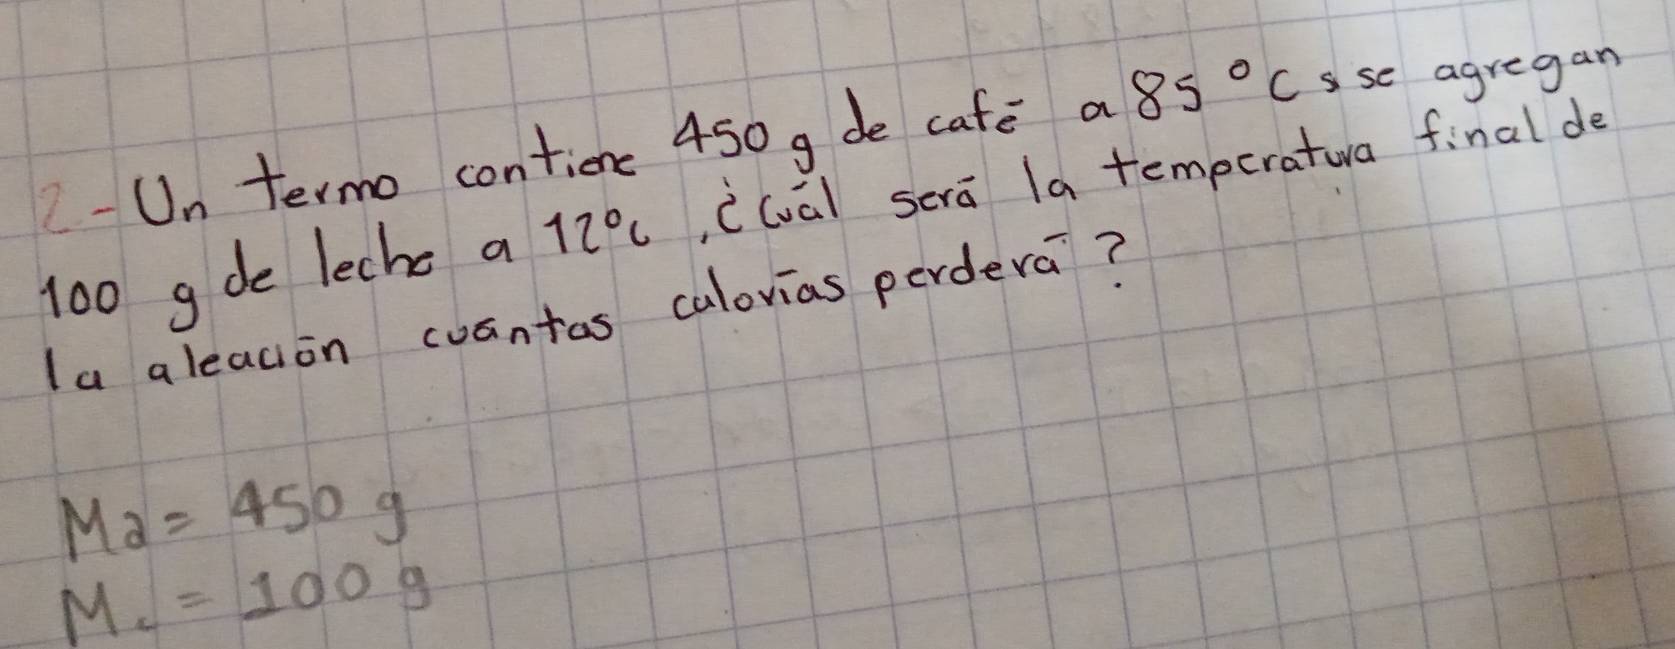 2-Un termo contiene 450 g de café a 85 °C s se agregan
100 g de leche a 12°C, ¿Cuál será la temperatura final de
la aleación cuántas calorías perderá?
Ma= 450 g
M = 100 g